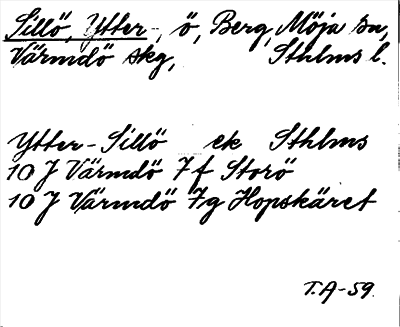 Sillö, Ytter-, ö, Berg, Möja sn,
Värmdö skg, Sthlms l.
Ytter-Sillö ek Sthlms
10 J Värmdö 7f Storö
10 J Värmdö 7g Hopskäret
T.A-59.